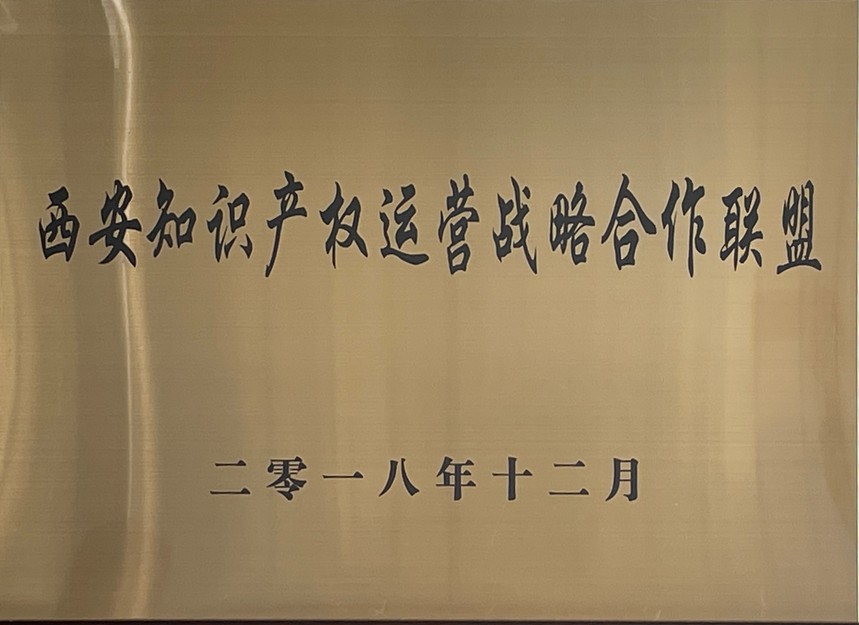 西安知识产权运营战略合作联盟
二零一八年十二月